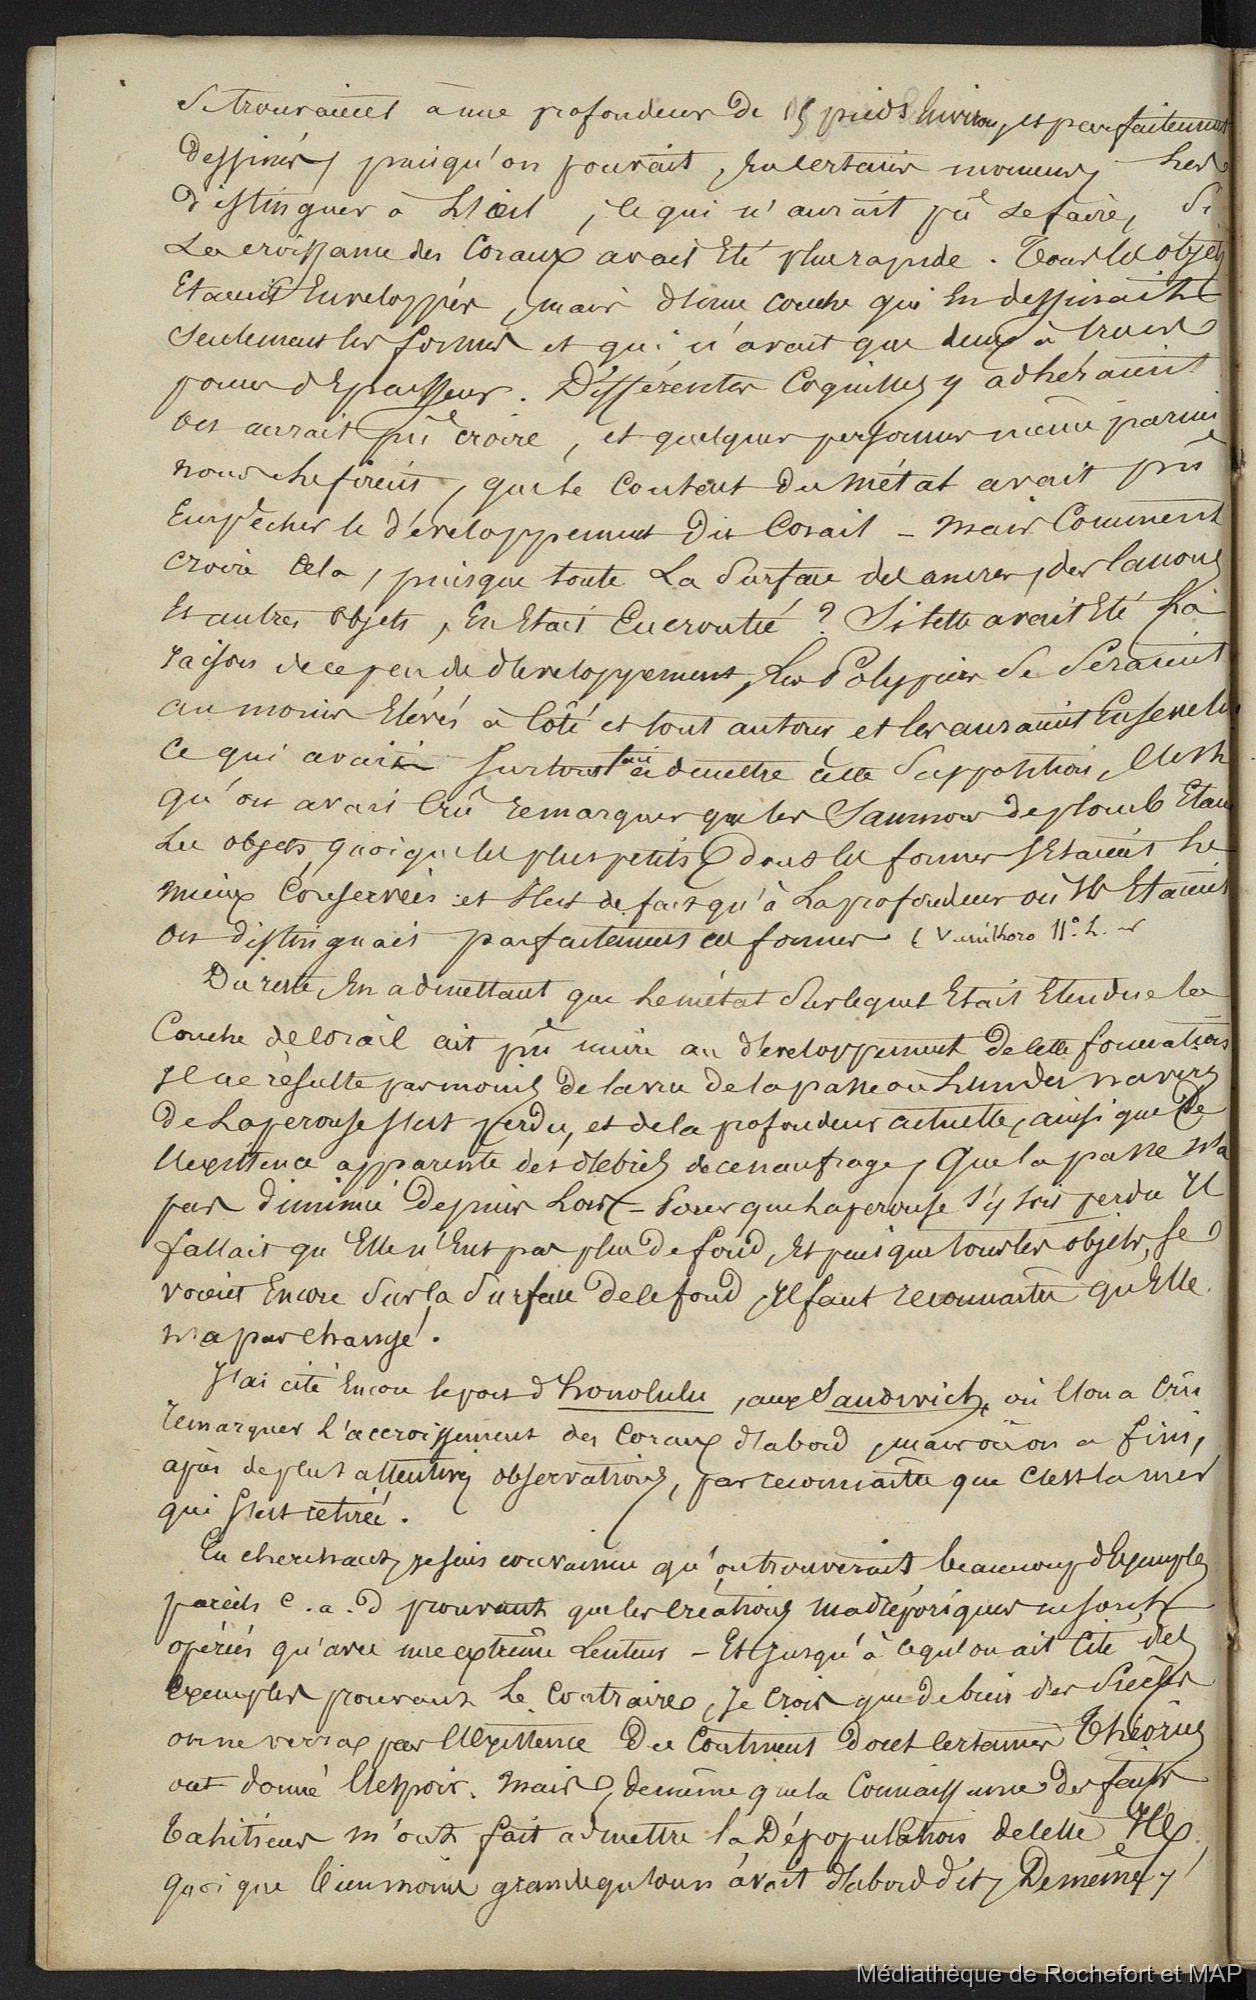 se trouvaient à une profondeur de 15 pieds environ, et parfaitement
dessinés, puisqu'on pouvait, en certains momens, les
distinguer à l'œil, ce qui n'aurait pû se faire, si
la croissance des Coraux avait été plus rapide. Tous les objets
étaient enveloppés, mais d'une couche qui en dessinait
seulement les formes et qui n'avait que deux à trois
pouces d'épaisseur. Différentes Coquilles y adhéraient
on aurait pû croire, et quelques personnes même parmi
nous le firent, que le contact du métal avait pû
empêcher le développement du Corail - mais Comment
croire cela, puisque toute la surface des ancres, des Canons
et autres objets, en était encroutée? Si telle avait été la
raison de ce peu de développement, les Polypiers se seraient
au moins élevés à côté et tout autour et les auraient ensevelis
Ce qui avait surtout fait admettre cette supposition, c'est
qu'on avait crû remarquer que les Saumons de plomb étaient
les objets, quoique les plus petits, dont les formes s'étaient le
mieux conservées et il est de fait qu'à la profondeur où ils étaient
on distinguait parfaitement ces formes (Vanikoro 11°. L.
Du reste, en admettant que le métal sur lequel était étendue la
Couche de Corail ait pû nuire au développement de cette formation
il ne résulte pas moins de la vue de la passe où l'un des navires
de Laperouse s'est perdu, et de la profondeur actuelle, ainsi que de
l'existence apparente des débris de ce naufrage, que la passe n'a
pas diminué depuis lors - Pour que Laperouse s'y soit perdu il
fallait qu'elle n'eut pas plus de fond, et puisque tous les objets se
voient encore sur la surface de ce fond, il faut reconnaître qu'elle
n'a pas changé.
J'ai cité encore le port d'honolulu, aux Sandwich, où l'on a crû
remarquer l'accroissement des Coraux d'abord, mais où on a fini,
après de plus attentives observations, par reconnaître que c'est la mer
qui s'est retirée.
En cherchant, je suis convaincu qu'on trouverait beaucoup d'exemples
pareils c.a.d prouvant que les créations madréporiques ne sont
opérées qu'avec une extrême lenteur - Et jusqu'à ce qu'on ait cité des
exemples prouvant le contraire, je crois que de bien des siècles
on ne verra pas l'existence du Continent dont certaines Théories
ont donné l'espoir. mais, de même que la Connaissance des faits
tahitiens m'ont fait admettre la Dépopulation de cette Ile,
quoique bien moins grande qu'on n'avait d'abord dit, De même,
Médiathèque de Rochefort et MAP